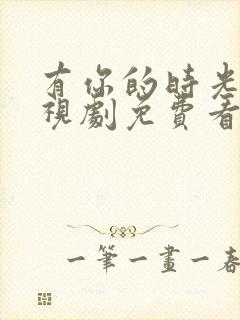 有你的時光
視劇免費看
一筆一畫一春